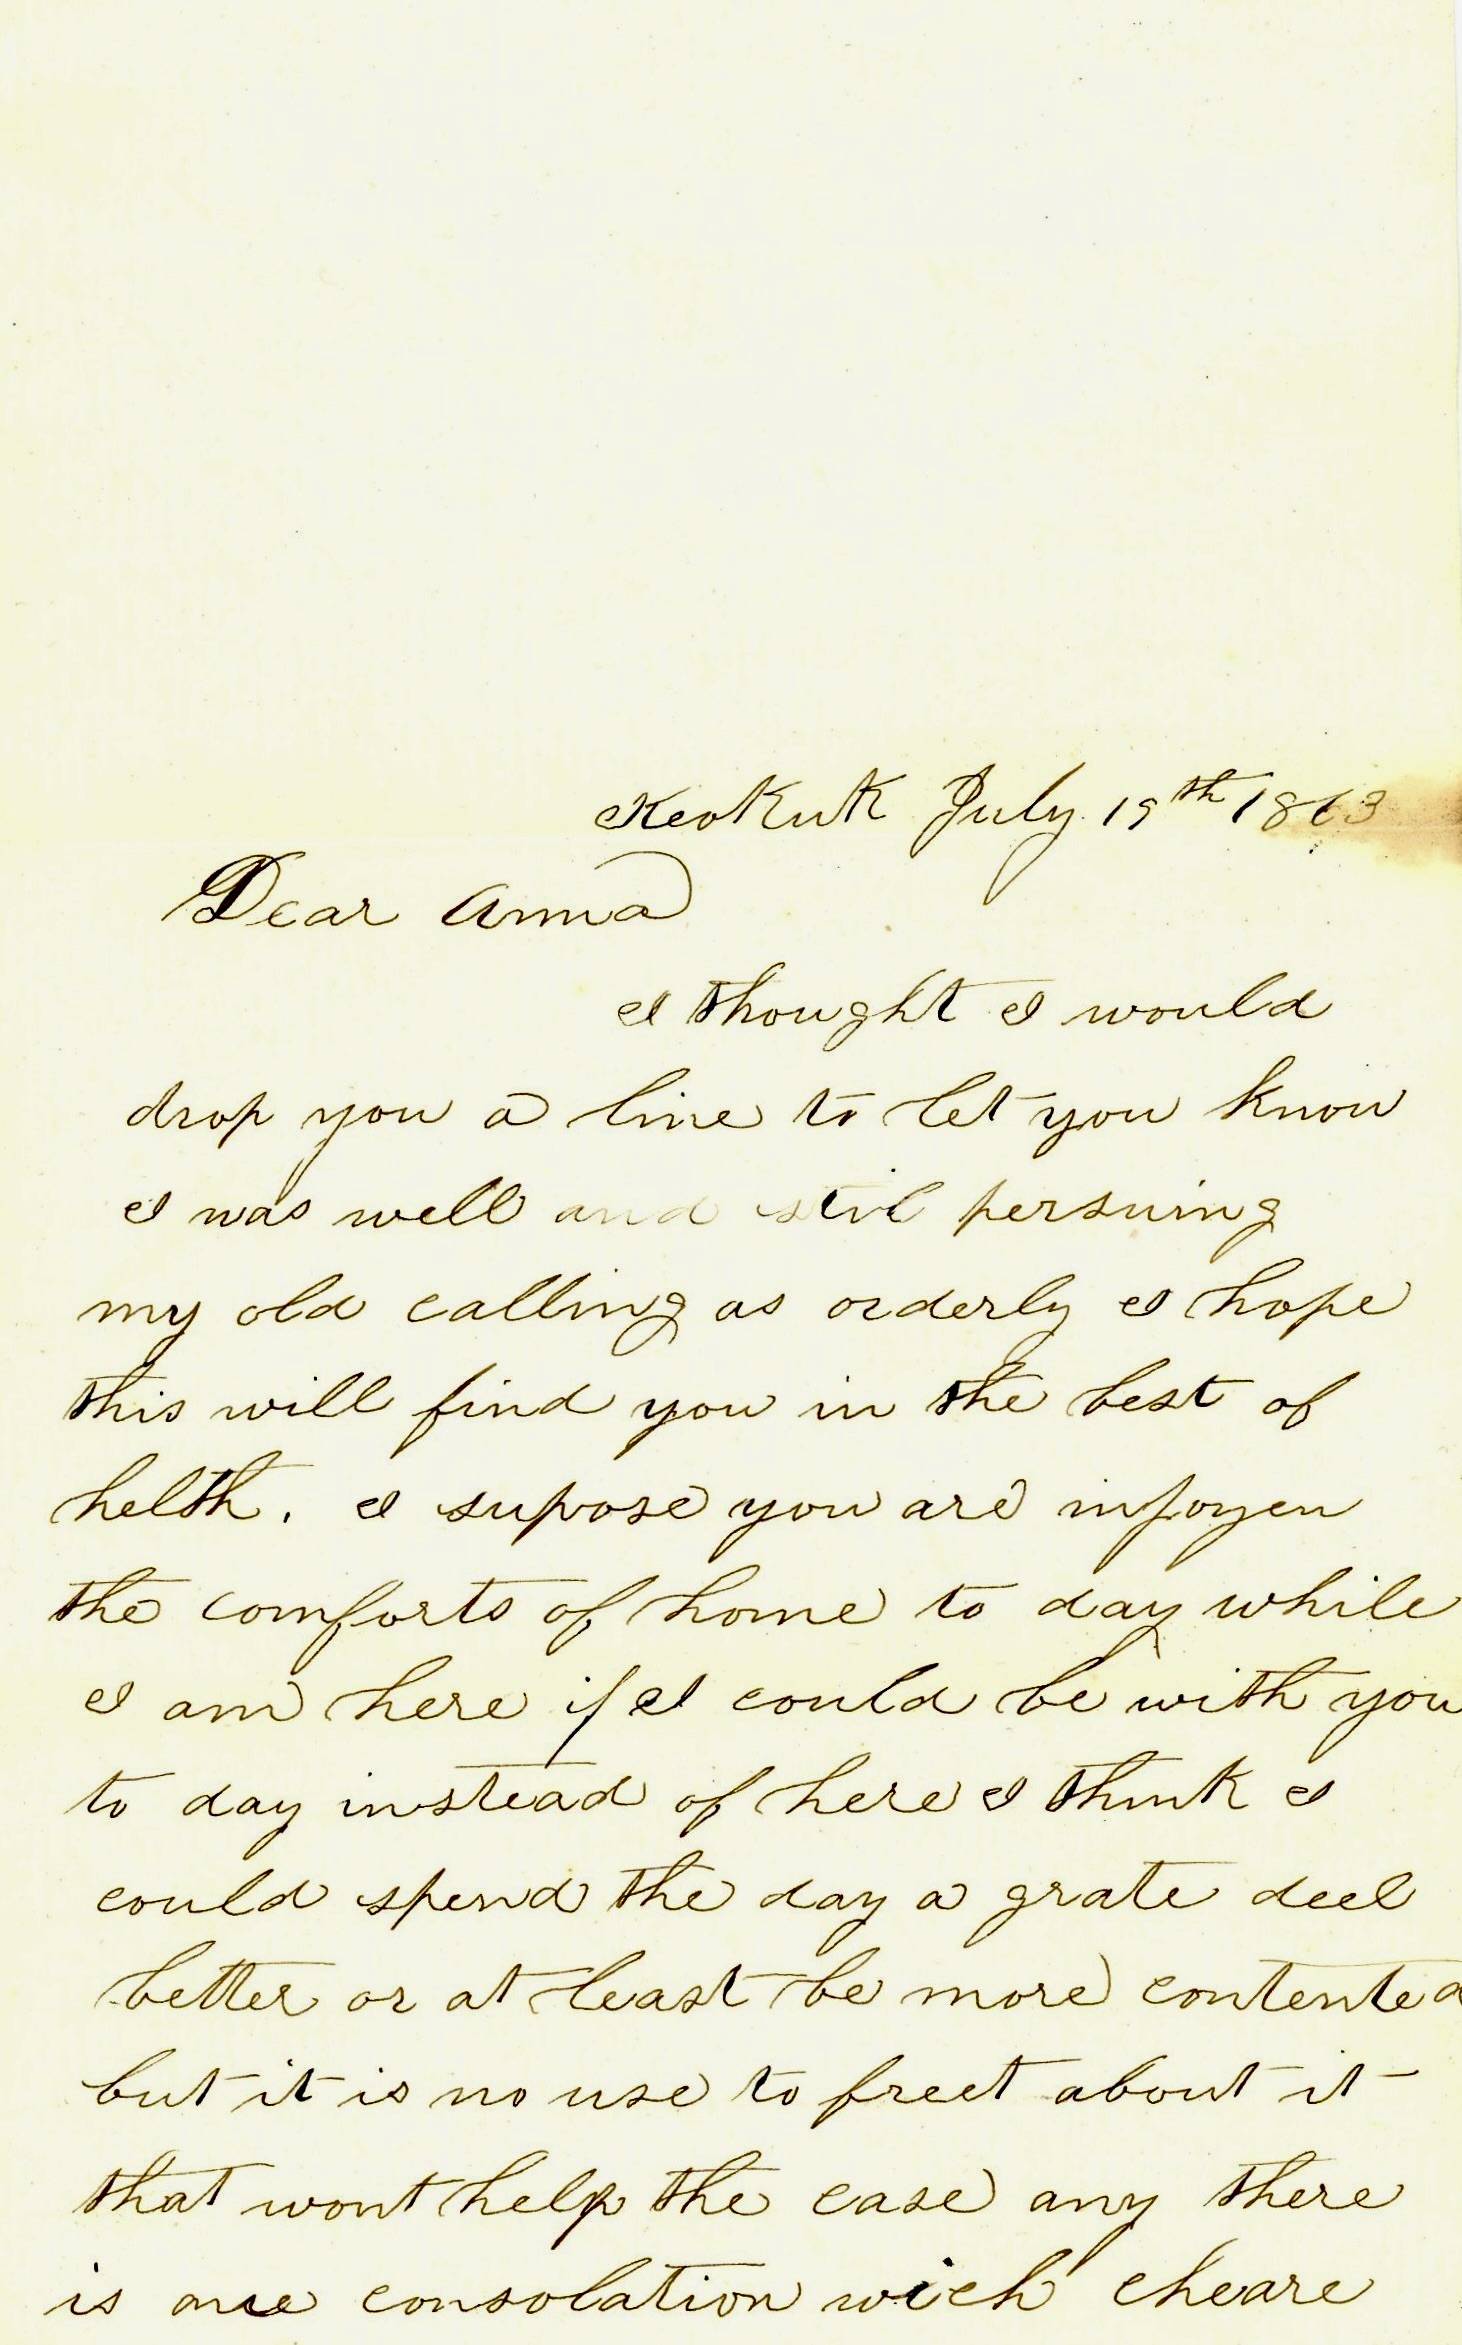 Keokuk July 19th 1863
Dear Anna
I thought I would
drop you a line to let you know
I was well and stil persuing
my old calling as orderly I hope
this will find you in the best of
helth. I supose you are injoyen
the comforts of home to day while
I am here if I could be with you
to day instead of here I think I
could spend the day a grate deel
better or at least be more contented
but it is no use to freet about it
that wont help the case any there
is one consolation wich cheare